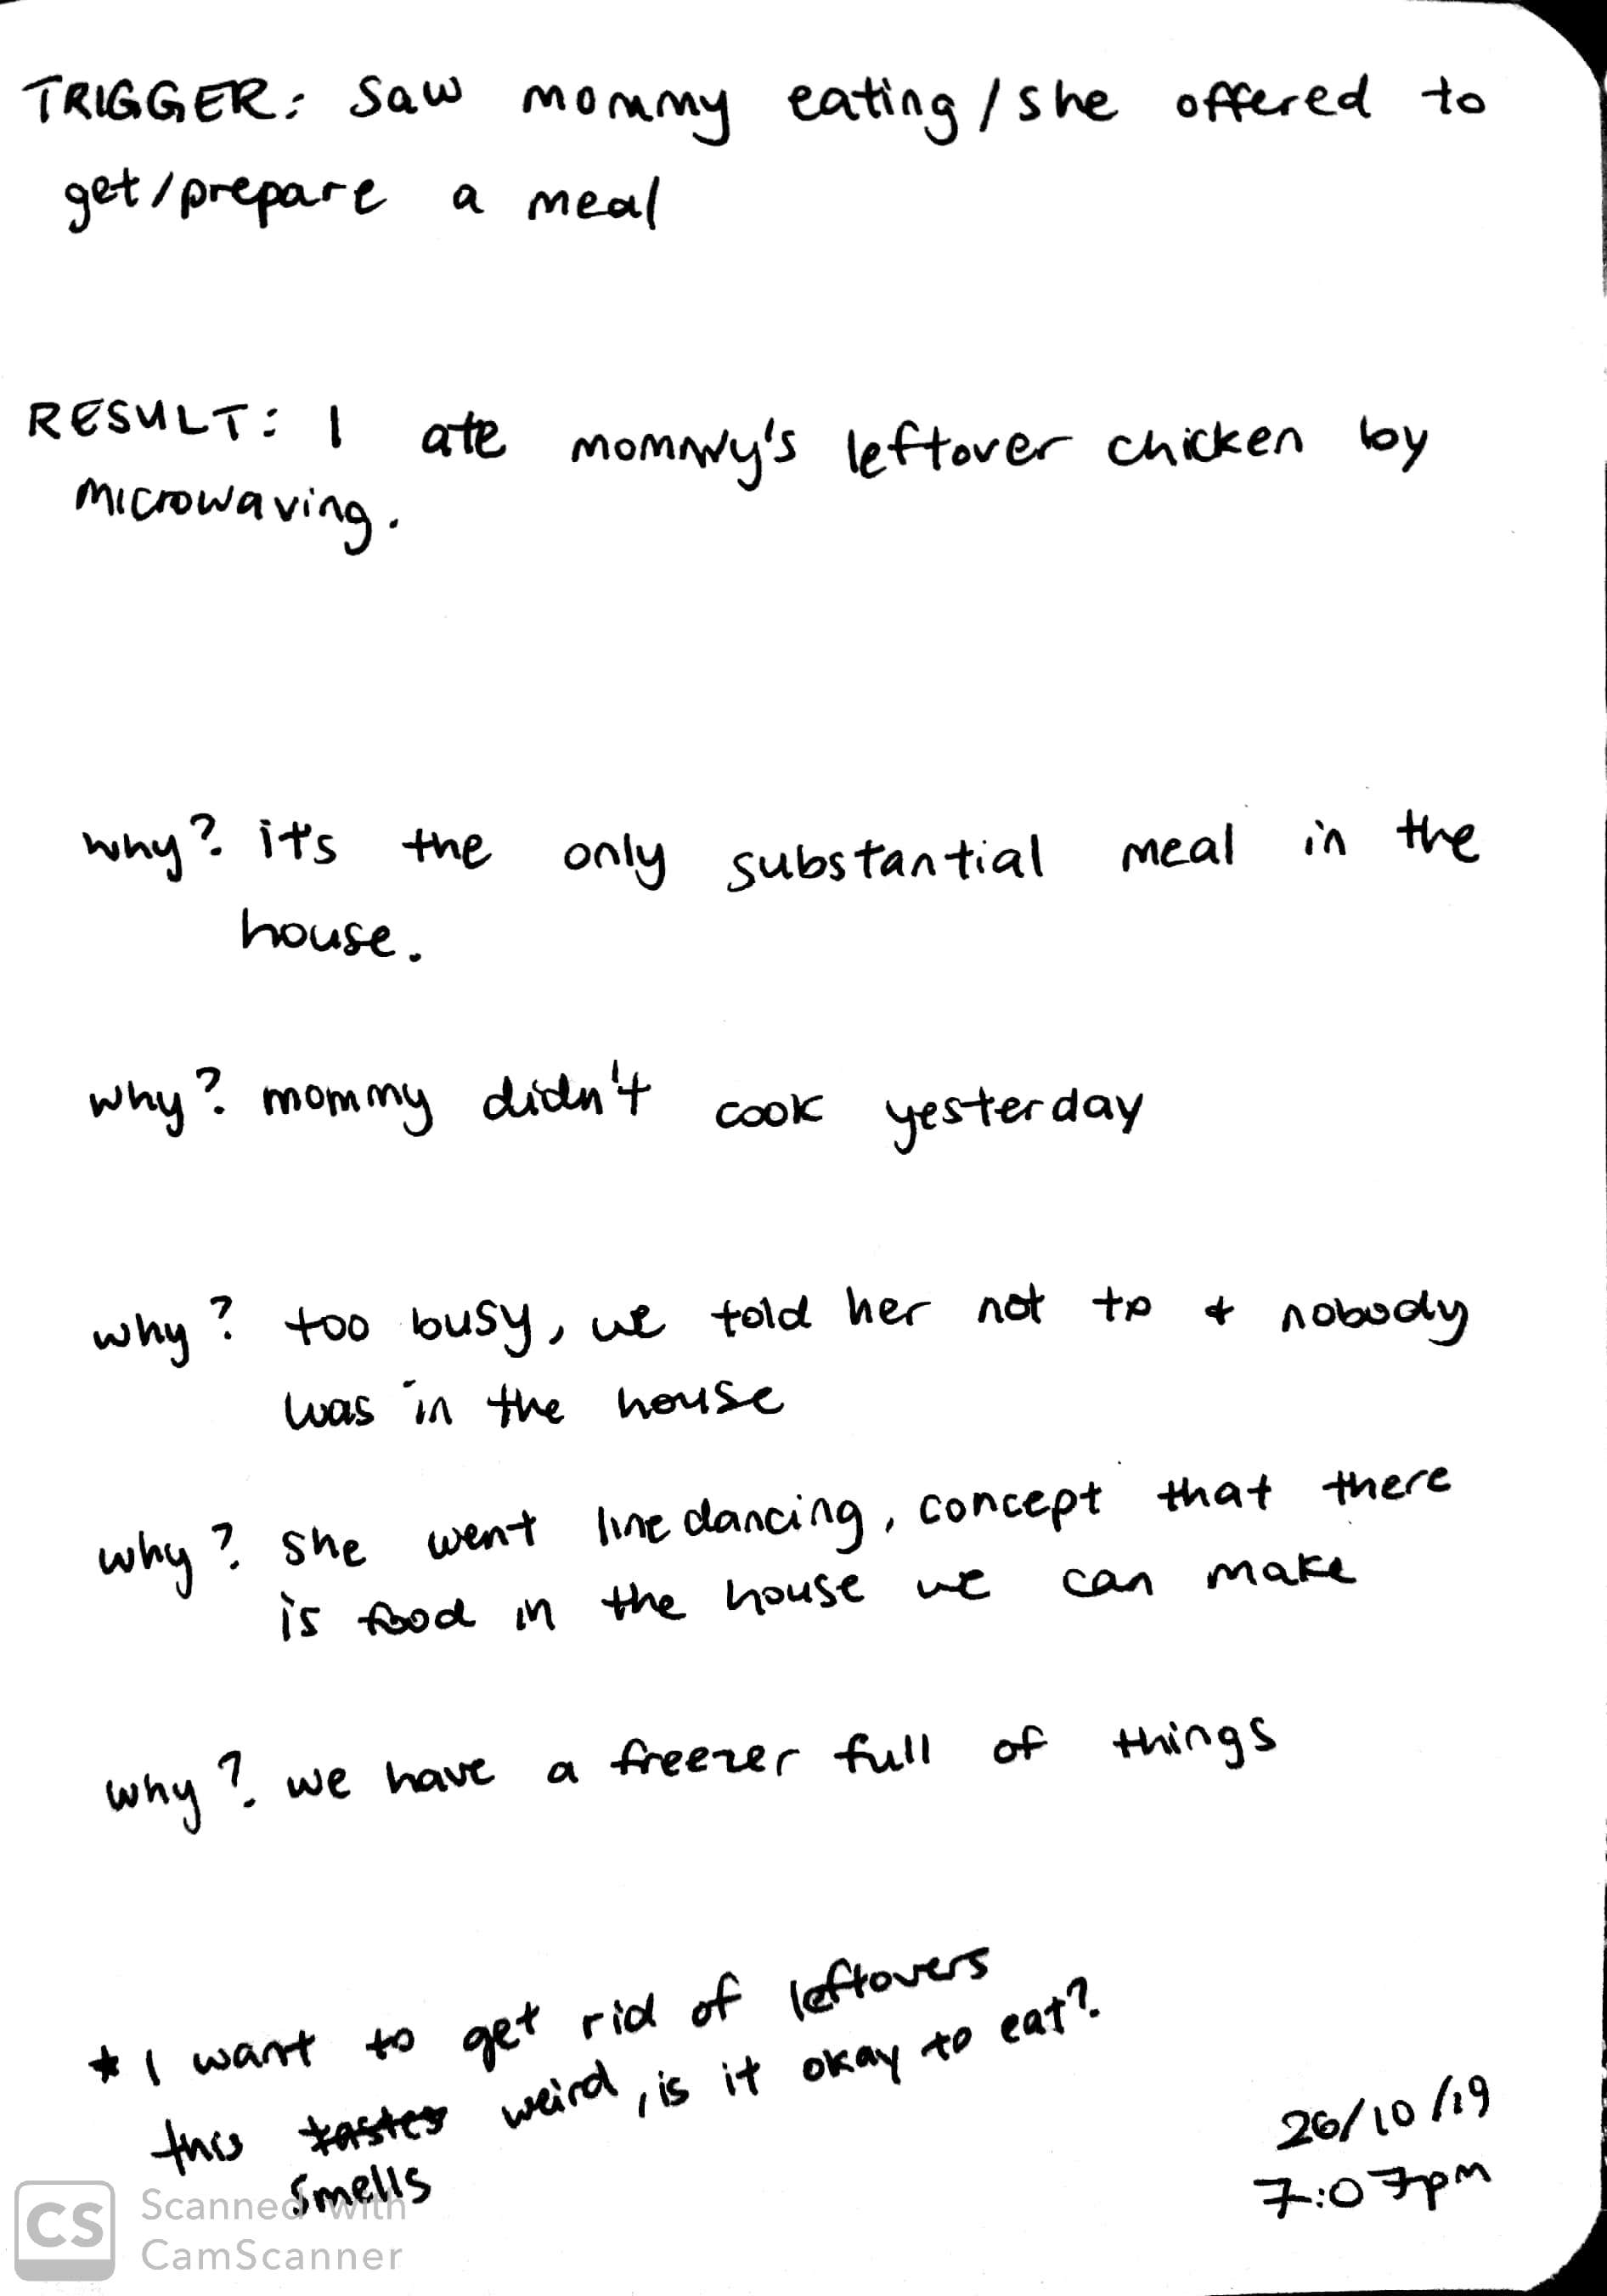 TRIGGER: Saw mommy eating/she offered to
get/prepare a meal
RESULT: I ate mommy's leftover chicken by
microwaving.
why? it's the only substantial meal in the
house.
why? mommy didn't cook yesterday
why? too busy, we told her not to & nobody
was in the house
why? she went line dancing, concept that there
is food in the house we can make
why? we have a freezer full of things
* I want to get rid of leftovers
this tastes weird, is it okay to eat?
smells
26/10/19
7:07pm
CS
Scanned with
CamScanner